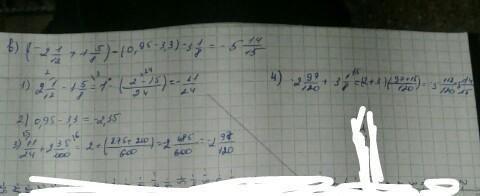 б) (-2 1/12 + 1 5/8) - (0,95 - 3,3) - 3 1/8 = -5 14/15
1) 2 1/12 - 1 5/8 = 1 - (2-15/24) = -11/24
2) 0,95 - 3,3 = -2,35
3) 11/24 + 2 35/100 = 2 + (275+210/600) = 2 485/600 = -2 97/120
4) -2 97/120 + 3 1/8 = (2+3) (97+15/120) = -5 112/120 14/15